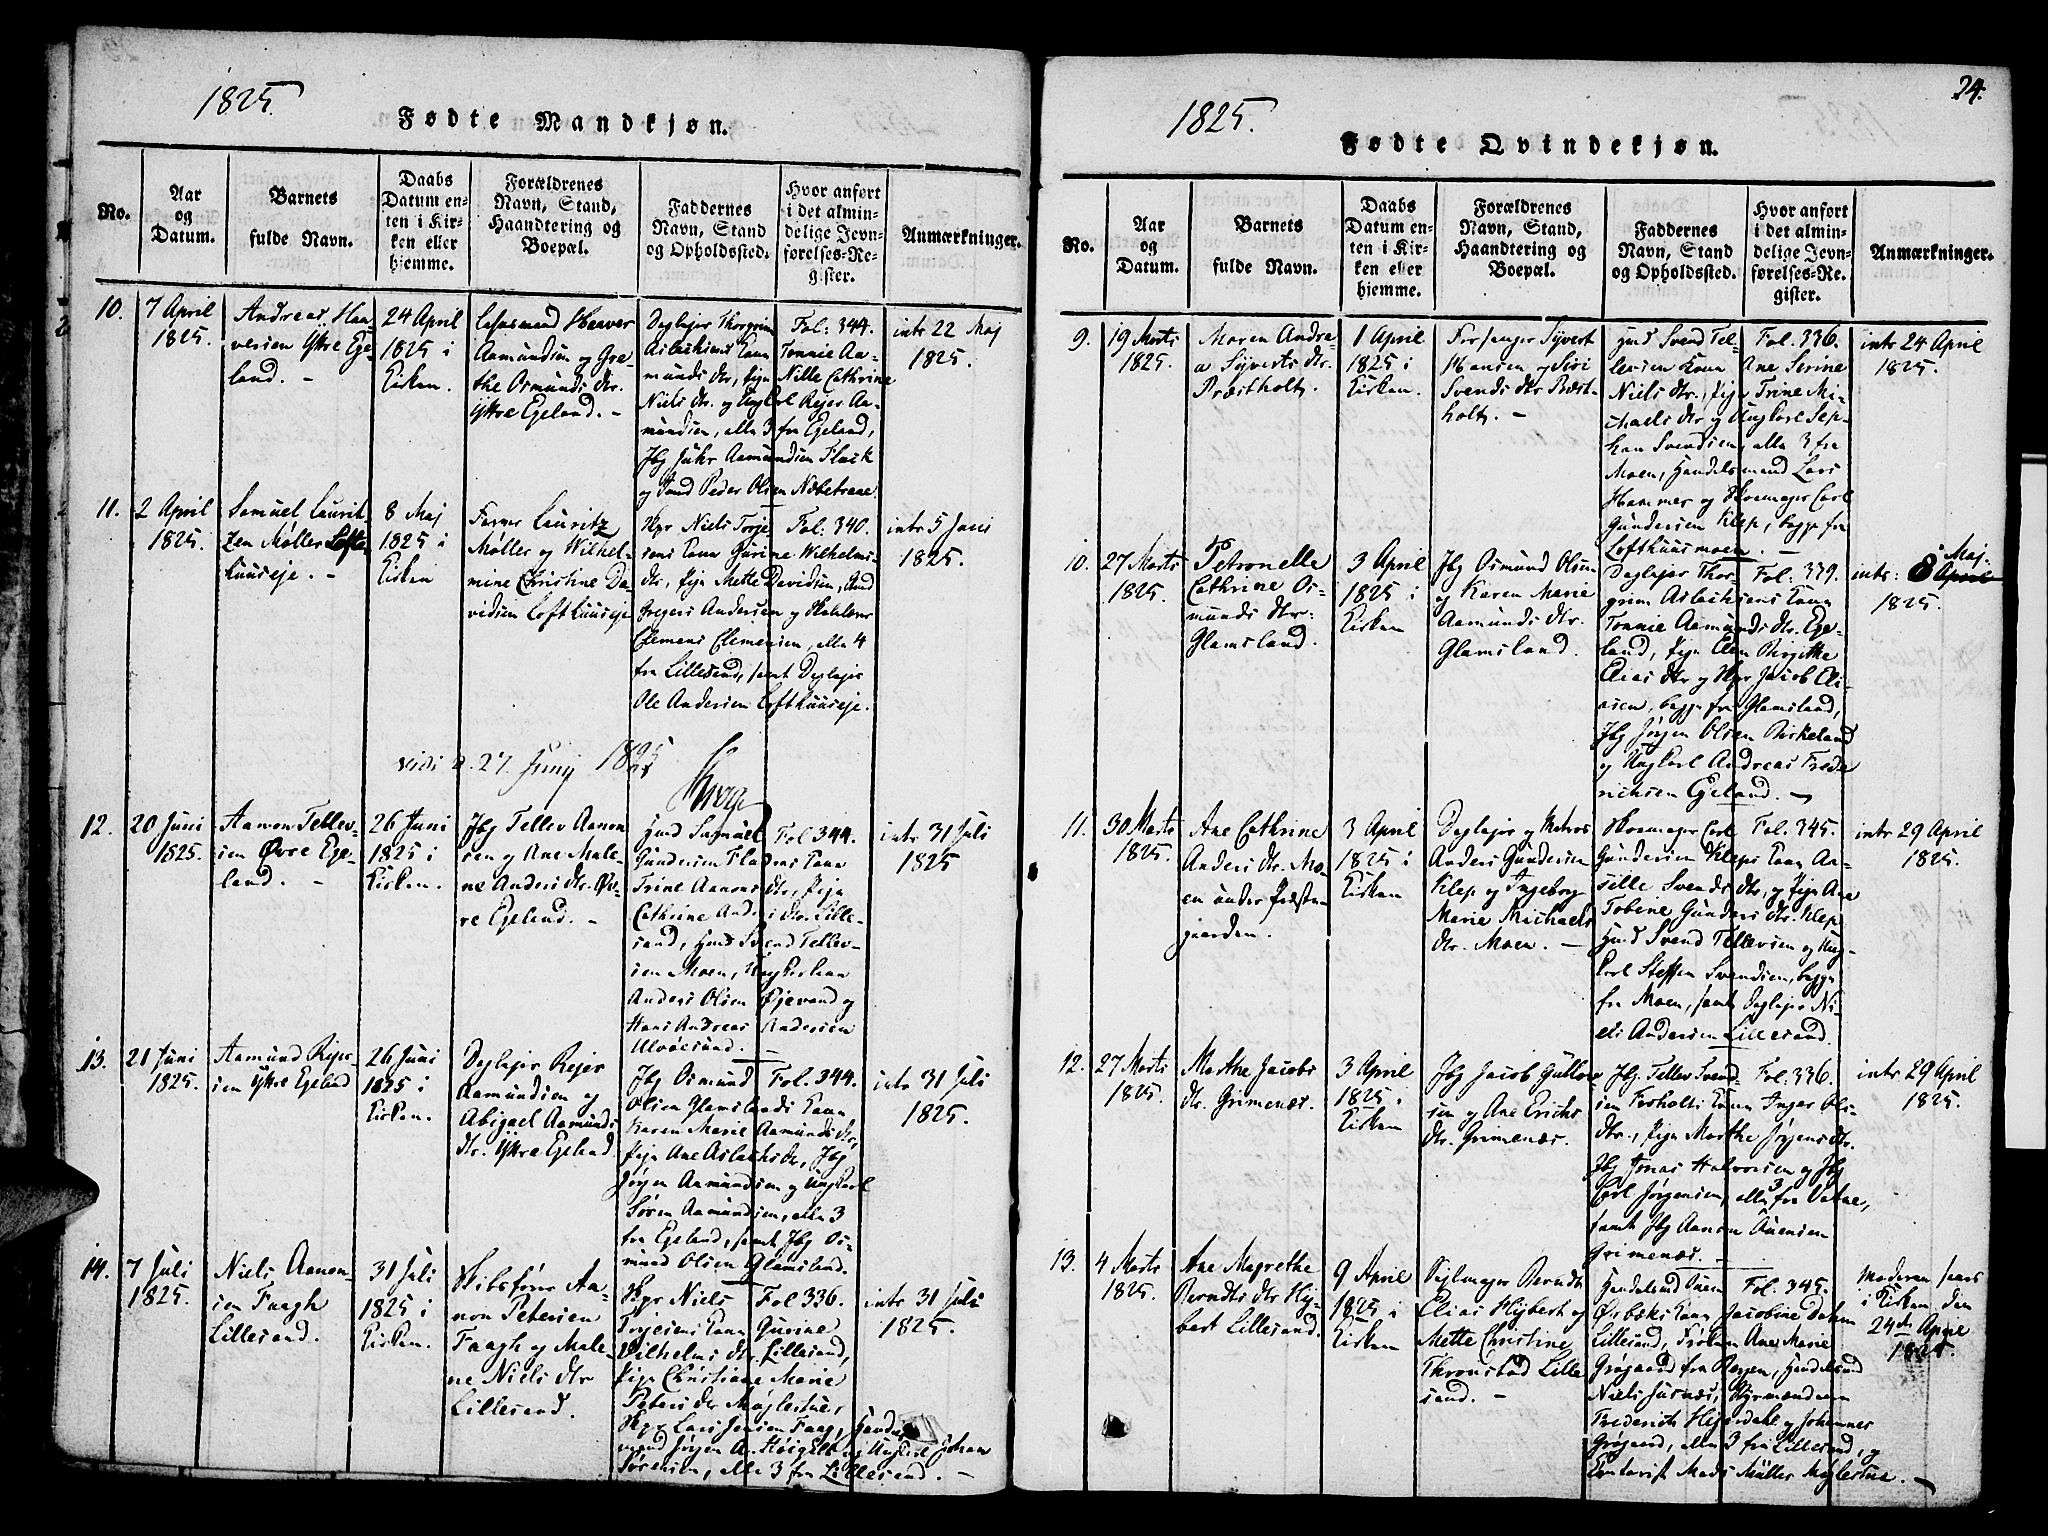 1825.
Fødte Mandkjøn.
No.
Aar
og
Datum.
Barnets
fulde Navn.
Daabs
Datum en-
ten i Kir-
ken eller
hjemme.
Forældrenes
Navn, Stand,
Haandtering og
Boepæl.
Faddernes
Navn, Stand
og Opholdssted.
Hvor anført
i det almin-
delige Jevn-
førelses-Re-
gister.
Anmærkninger.
10.
7 April
1825.
Andreas Haa-
versen Yttre Ege-
land. -
24 April
1825 i
Kirken.
Haaver
Aamundsen og Gre-
the Osmunds dtr.
Yttre Egeland. -
Thorgrim
Aslachsens Kone Tonnie Aa-
munds dtr, Pign Nille Cathrine
Niels dtr. og Ungkarl Rejer Aa-
mundsen, alle 3 fra Egeland,
Jbg Juhr Aamundsen Flack
og Peder Olsen
Fol: 344.
intr 22 Maj
1825.
11.
2 April
1825.
Samuel Laurit-
zen Møller Loft-
huuseje. -
8 Maj
1825 i
Kirken
Farver Lauritz
Møller og Wilhel-
mine Christine Da-
vidsen Lofthuuseje
Skpr Niels Torje-
sens Kone Gurine Wilhelms
dtr, Pign Mette Davidsen,
Gregers Andersen og
Clemens Clemensen, alle 4
fra Lillesand, samt Deglejer
Ole Andersen Lofthuuseje.
Fol: 340.
intr 5 Juni
1825.
vidi d. 27. Junij 1825
12.
20 Juni
1825.
Aanon Tellev-
sen Øvre Ege-
land. -
26 Juni
1825 i
Kirken.
Jbg Tellev Aanon-
sen og Ane Male-
ne Anders dtr. Øv-
re Egeland. -
Huusmd Samuel
Gundersen Kone
Trine Aanons dtr, Pign
Cathrine Anders dtr. Lille-
sand, Huusmd Svend Tellev-
sen Moen, Ungkarlene
Anders Olsen og
Hans Andreas Andersen
Ulvøesund. -
Fol 344.
intr 31 Juli
1825
13.
21 Juni
1825.
Aamund Rejer-
sen Yttre Egeland
26 Juni
1825 i
Kirken.
Deglejer Rejer
Aamundsen og
Abigael Aamunds
dtr. Yttre Egeland.
Jbg Osmund
Olsen Glamslands Kone
Karen Marie Aamunds dtr,
Pign Ane Aslachs dtr, Jbg
Jørgen Aamundsen og Ungkarl
Søren Aamundsen, alle 3
fra Egeland, samt Jbg Os-
mund Olsen Glamsland.
Fol. 344.
intr 31 Juli
1825.
14.
7 Juli
1825.
Niels Aanon-
sen Faagh
Lillesand.
31 Juli
1825 i
Kirken.
Skibsfører Aa-
non Petersen
Faagh og Male-
ne Niels dtr
Lillesand.
Skpr Niels
Torjesens Kone Gurine
Wilhelms dtr. Lillesand,
Pign Christiane Marie
Peters dtr Møglestue,
Skpr Lars Jensen Faag, Handels-
mand Jørgen A. og Ungkarl Johan
Sørensen, alle 3 fra Lillesand. -
Fol 336.
intr 31 Juli
1825.
24.
1825.
Fødte Qvindekjøn.
No.
Aar
og
Datum.
Barnets
fulde Navn.
Daabs
Datum en-
ten i Kir-
ken eller
hjemme.
Forældrenes
Navn, Stand,
Haandtering og
Boepæl.
Faddernes
Navn, Stand
og Opholdssted.
Hvor anført
i det almin-
delige Jevn-
førelses-Re-
gister.
Anmærkninger.
9.
19 Marts
1825.
Maren Andre-
a Syverts dtr.
Præstholt.
1 April
1825 i
Kirken.
Forsanger Syvert
Hansen og Siri
Svends dtr Præst-
holt. -
Huusmd Svend Tel-
levsen Kone Ane Serine
Niels dtr, Pign Trine Mi-
chaels dtr og Ungkarl Step-
han Svendsen, alle 3 fra
Moen, Handelsmand Lars
Hammer og Skomager Carl
Gundersen Klep, begge fra
Lofthuusmoen. -
Fol. 336.
intr 24 April
1825.
10.
27 Marts
1825.
Petronelle
Cathrine Os-
munds dtr.
Glamsland.
3 April
1825 i
Kirken
Jbg Osmund Olsen
og Karen Marie
Aamunds dtr.
Glamsland.
Deglejer Thor-
grim Aslachsens Kone
Tonnie Aamunds dtr. Ege-
land, Pign Elen Birgithe
Elias dtr og Skpr Jacob Eli-
asen, begge fra Glamsland,
Jbg Jørgen Olsen Birkeland
og Ungkarl Andreas Frede-
richsen Egeland. -
Fol. 339.
intr: 8 Maj. April
1825.
11.
30 Marts
1825.
Ane Cathrine
Anders dtr. Mo-
en under Præste-
gaarden.
3 April
1825 i
Kirken
Deglejer og Matros
Anders Gundersen
Klep og Ingeborg
Marie Michaels
dtr. Moen. -
Skomager Carl
Gundersen Kleps Kone Aa-
selle Svends dtr, og Pign Ane
Tobine Gunders dtr. Klep,
Huusmd Svend Tellevsen og Ung-
karl Steffen Svendsen, begge
fra Moen, samt Deglejer Ni-
els Andersen Lillesand.
Fol. 345.
intr 29 April
1825.
12.
27 Marts
1825.
Marthe Jacobs
dtr. Grimenæs.
3 April
1825 i
Kirken
Jbg Jacob Gullov-
sen og Ane Erichs
dtr. Grimenæs.
Jbg. Tellev Svend-
sen Kone Inger Ols-
dtr., Pign Marthe Jørgens dtr.
Jbg Jonas Halvorsen og Jbg
Carl Jørgensen, alle 3 fra Vatne,
samt Jbg Aanon Evensen
Grimenæs. -
Fol. 336.
intr 29 April
1825.
13.
4 Marts
1825.
Ane Magrethe
Berndts dtr Hy-
bert Lillesand.
9 April
1825 i
Kirken
Sejlmager Berndt
Elias Hybert og
Mette Christine
Thronstad Lille-
sand. -
Ørbeks Kone Jacobine Dahm
Lillesand, Frøken Ane Marie
Grøgaard fra Bergen, Handelsmd
Niels Jusnæs, Styrmændene
Frederich og Johannes
Grøgaard, alle 3 fra Lillesand, og
Contorist Mads Møller Møglestue. -
Fol. 345.
Moderen
i Kirken den
24de April
1825.